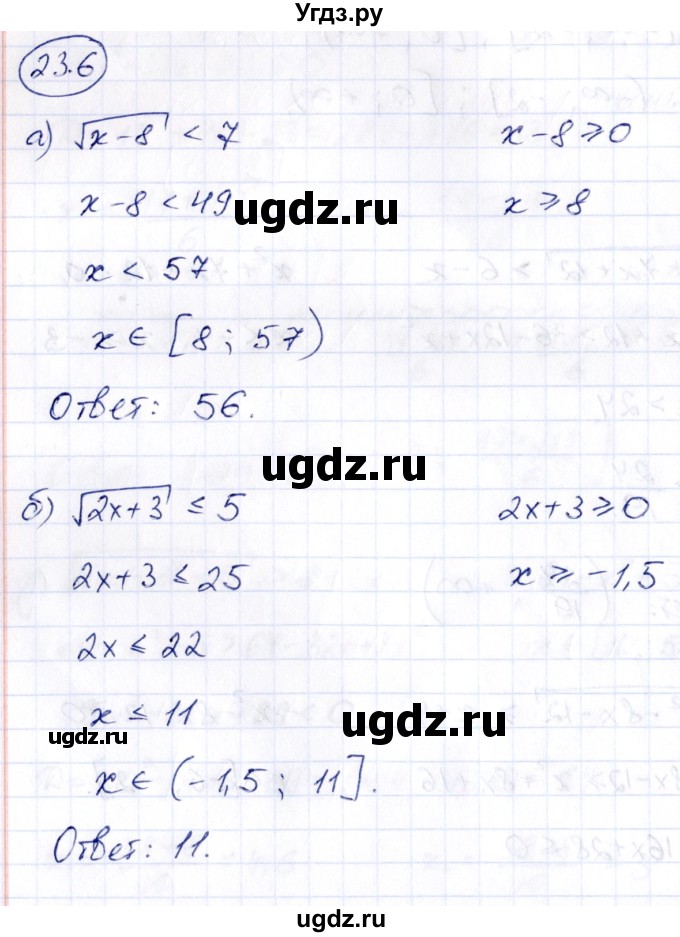 Угдз.ру
23.6
а) √(x-8) < 7    x-8 ≥ 0
x-8 < 49    x ≥ 8
ugdz.ru
x < 57
x ∈ [8; 57)
Ответ: 56.
ugdz.ru
б) √(2x+3) ≤ 5    2x+3 ≥ 0
2x+3 ≤ 25    x ≥ -1,5
2x ≤ 22
x ≤ 11
ugdz.ru
ugdz.ru
x ∈ (-1,5; 11].
Ответ: 11.
ugdz.ru